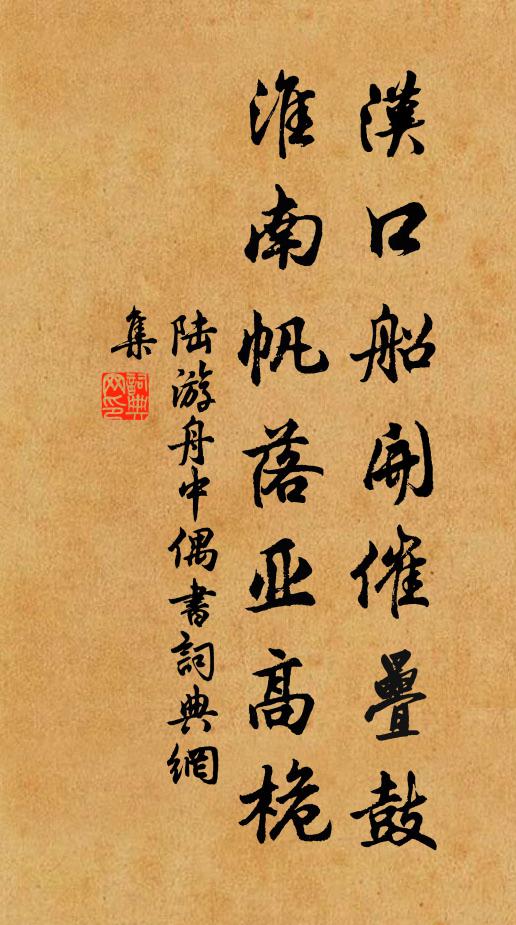 漢口船開催疊鼓
淮南帆落亚高桅
陆游舟中偶書詞典網
集
詞典
网印